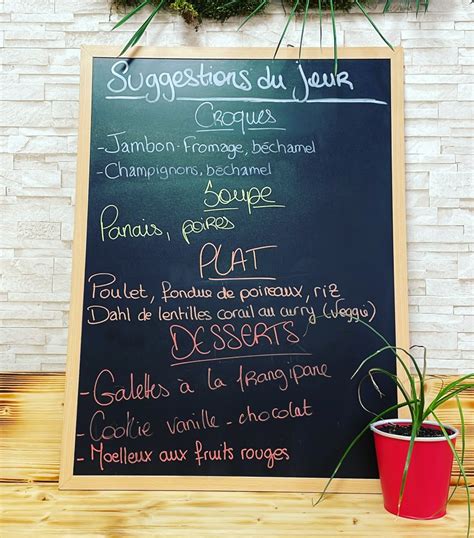 Suggestions du jeur
CROQUES
- Jambon-Fromage, béchamel
- Champignons, béchamel
Soupe
Panais, poires
PLAT
Poulet, fondue de poireaux, riz
Dahl de lentilles corail au curry (Veggie)
DESSERTS
- Galettes à la frangipane
- Cookie vanille - chocolat
- Moelleux aux fruits rouges